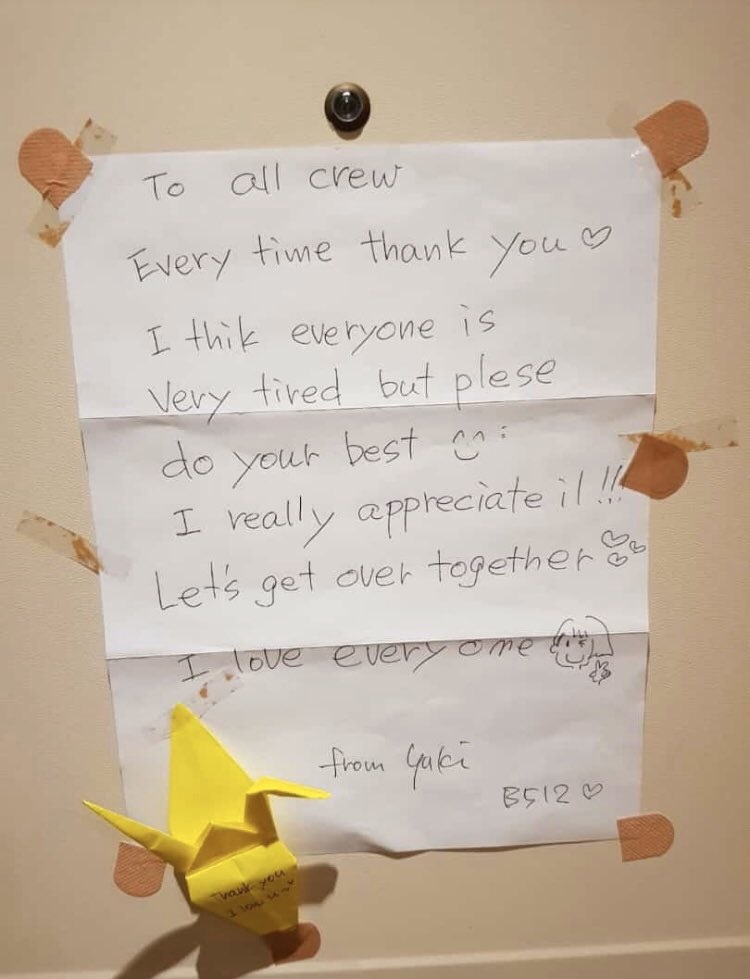 To all crew
Every time thank you ♡
I thik everyone is
Very tired but plese
do your best
I really appreciate it!!!
Let's get over together
I love everyone
from Yuki
B512 ♡
Thank you
I love u